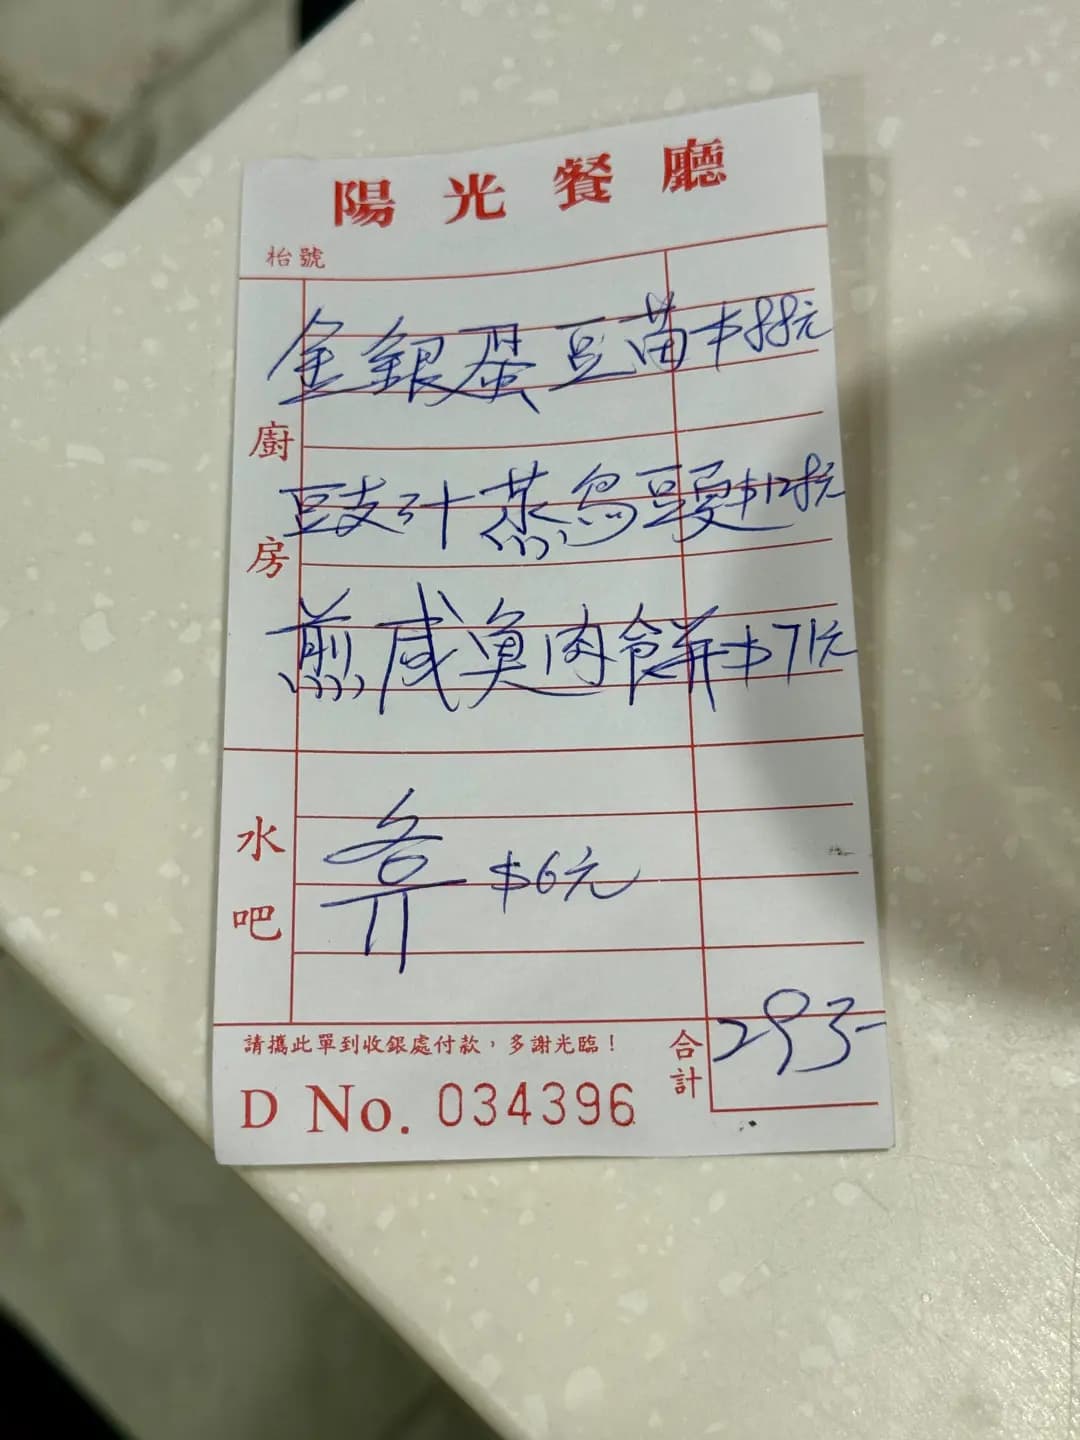 陽光餐廳
枱號
廚房
金銀蛋豆苗$88元
豉汁蒸烏頭$128元
煎咸魚肉餅$71元
水吧
$6元
合計
293-
請攜此單到收銀處付款,多謝光臨!
D No. 034396